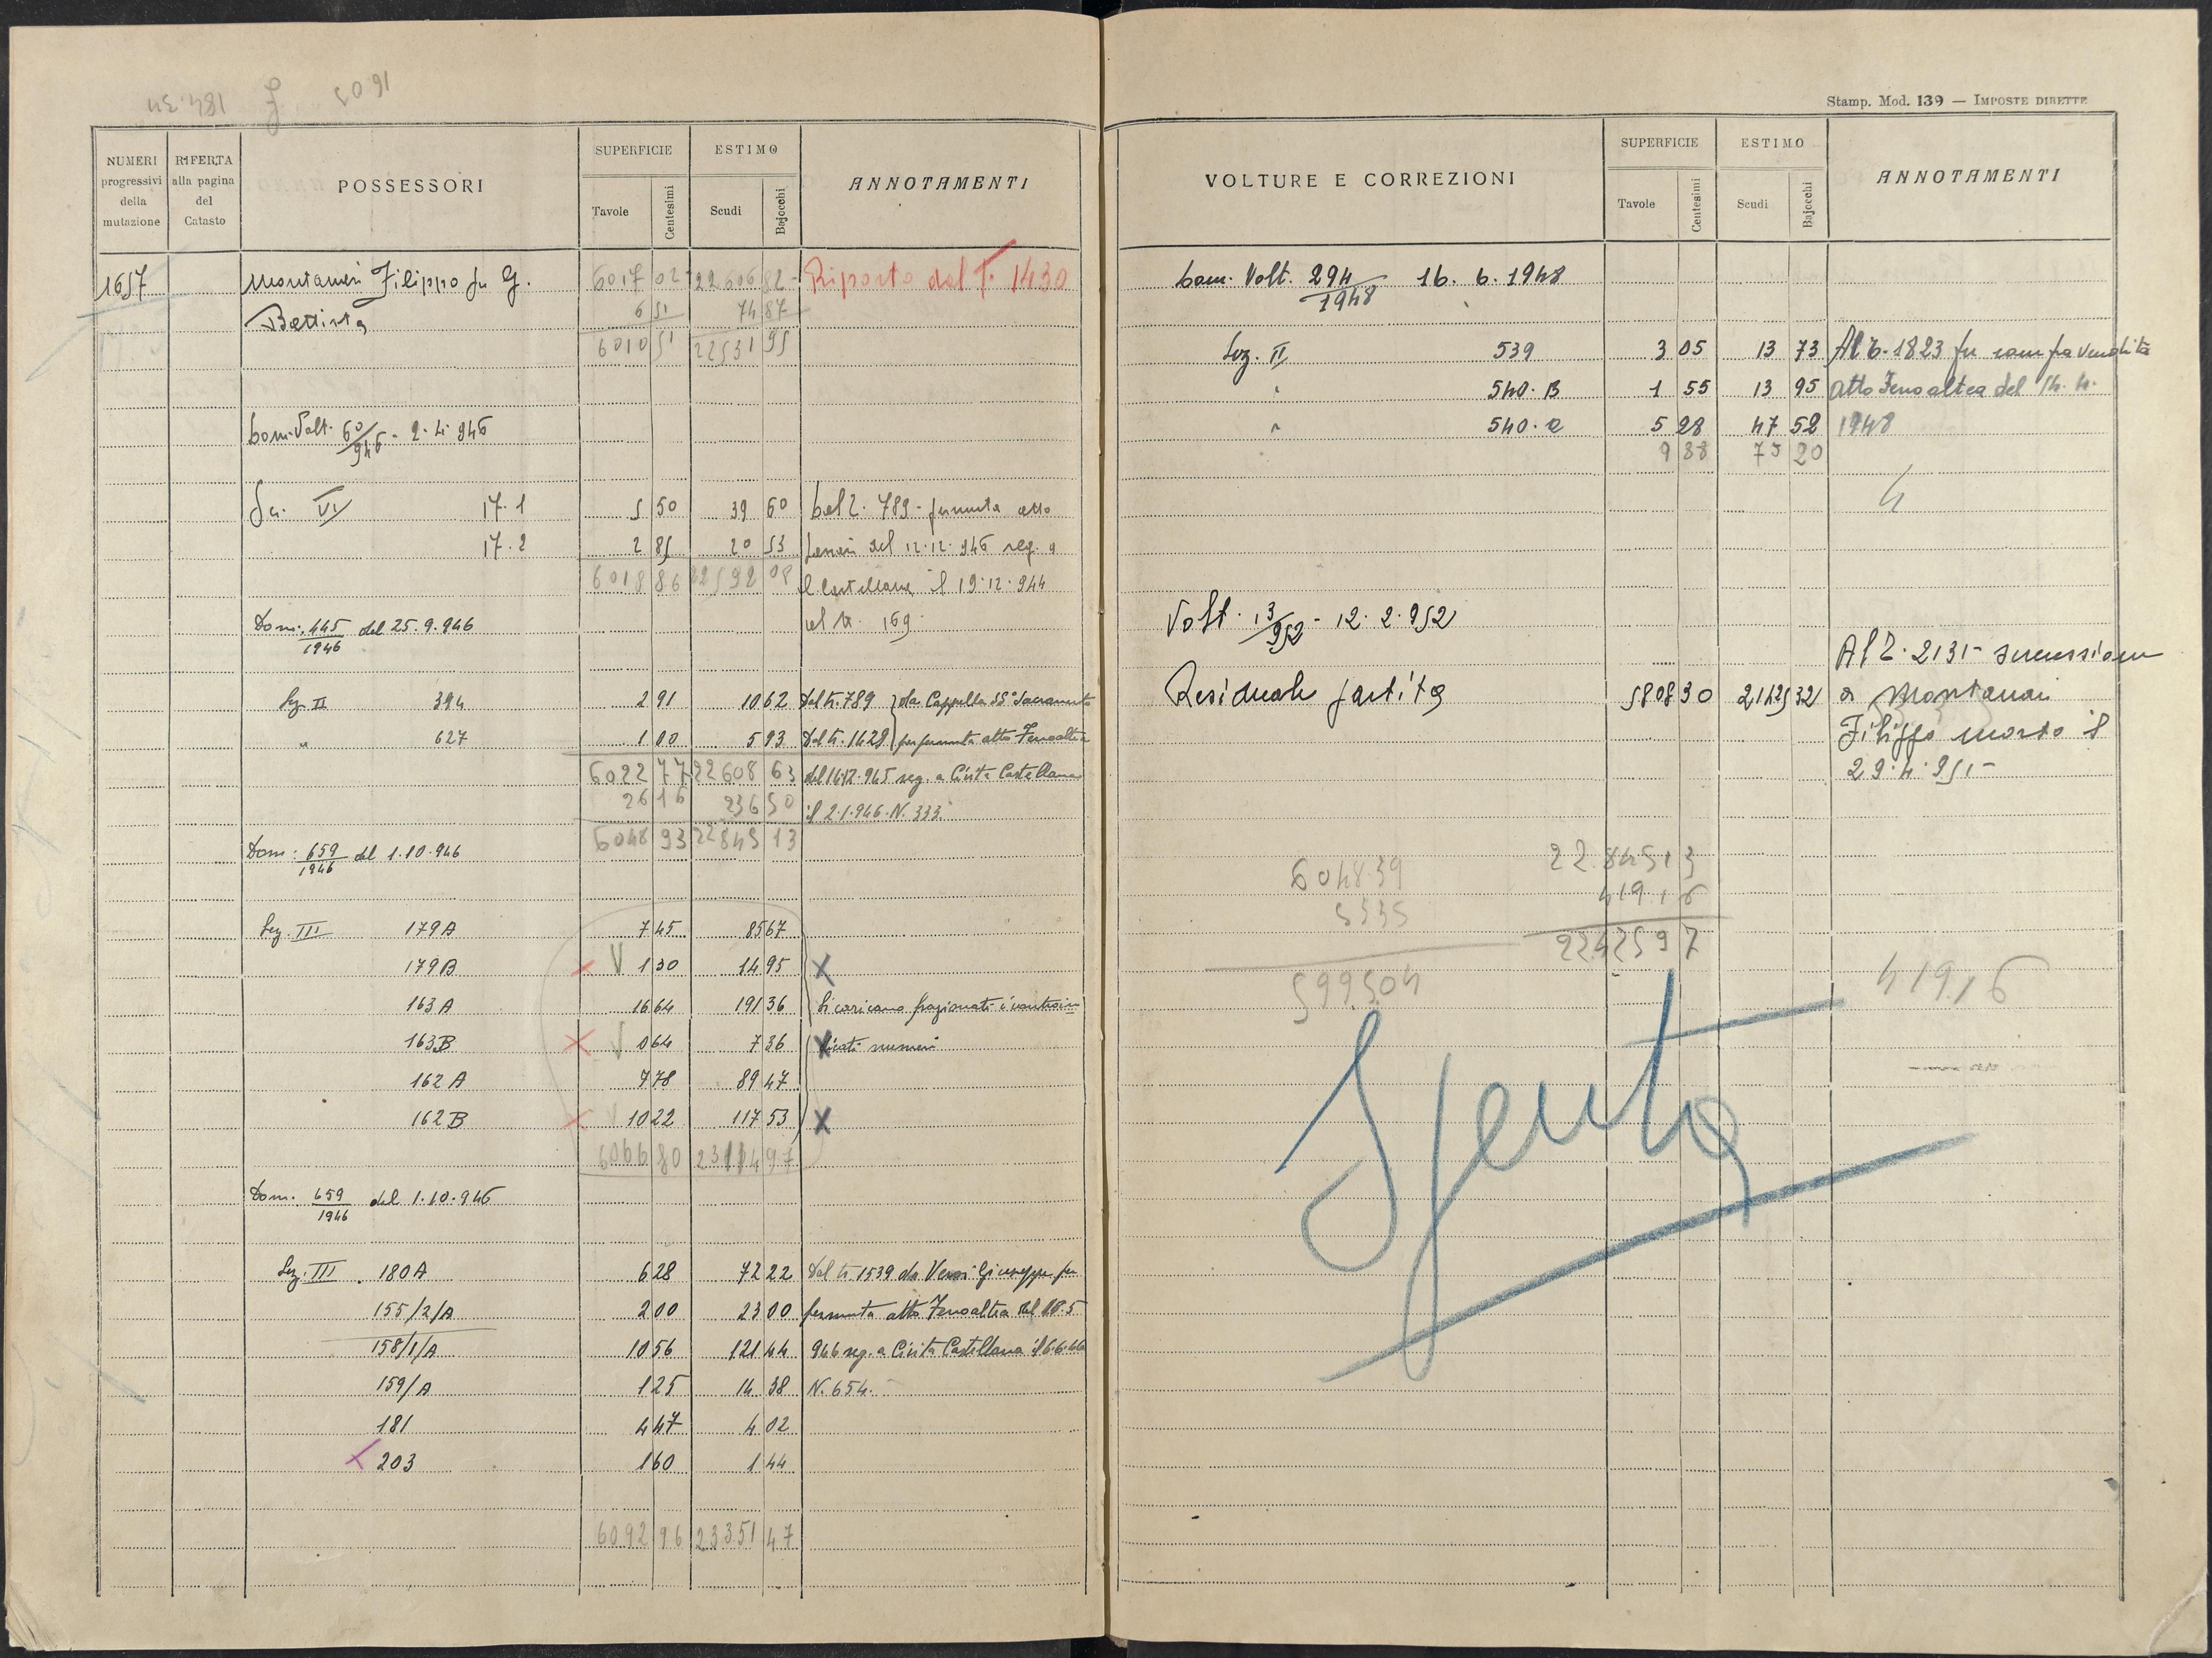 184.34 £ 16.05
NUMERI progressivi della mutazione
RIFERTA alla pagina del Catasto
POSSESSORI
SUPERFICIE
Tavole Centesimi
ESTIMO
Scudi Bajocchi
ANNOTAMENTI
1657 Montanari Filippo fu G. 6017 02 22606 82 Riporto dal T. 1430
Battista 6 51 74 87
6010 51 22531 95
Com. Volt. 60/946 - 2.4.946
Sez. VI 17.1 5 50 39 60 Dal T. 789 - permuta atto
17.2 2 85 20 53 del 12.12.946 reg. a
6018 86 22592 08 C. Castellana il 19.12.944
al N. 169
Dom. 445/1946 del 25.9.946
Sez. II 394 2 91 10 62 Dal tr. 789 da Cappella SS. Sacramento
" 627 1 00 5 93 Dal tr. 1628 per permuta atto Fenoaltea
6022 77 22608 63 del 16.12.945 reg. a Civita Castellana
26 16 236 50 il 2.1.946. N. 333
6048 93 22845 13
Dom: 659/1946 del 1.10.946
Sez. III 179A 7 45 85 67
179B V 1 30 14 95 X
163A 16 64 191 36 Si caricano frazionati i
163B V 0 64 7 36 X numeri
162A 7 78 89 47
162B V 10 22 117 53 X
6066 80 23114 97
Dom. 659/1946 del 1.10.946
Sez. III 180A 6 28 72 22 Dal tr. 1539 da Giuseppe per
155/2/A 2 00 23 00 permuta atto Fenoaltea del 18.5
158/1/A 10 56 121 44 946 reg. a Civita Castellana il 6.6.46
159/A 1 25 14 38 N. 654.
181 4 47 4 02
X 203 1 60 1 44
6092 96 23351 47
Stamp. Mod. 139 — IMPOSTE DIRETTE
VOLTURE E CORREZIONI
SUPERFICIE
Tavole Centesimi
ESTIMO
Scudi Bajocchi
ANNOTAMENTI
Com. Volt. 294/1948 16.6.1948
Sez. II 539 3 05 13 73 Al T. 1823 per compravendita
" 540.B 1 55 13 95 atto Fenoaltea del 14.4.
" 540.C 5 28 47 52 1948
9 88 75 20
4
Volt. 13/952 - 12.2.952
Al T. 2131 - successione
Residuale partita 5808 30 21425 32 a Montanari
Filippo morto il
29.4.951 -
6048 39 22.845 13
53 35 419 16
5995 04 22425 97
419,16
Spenta